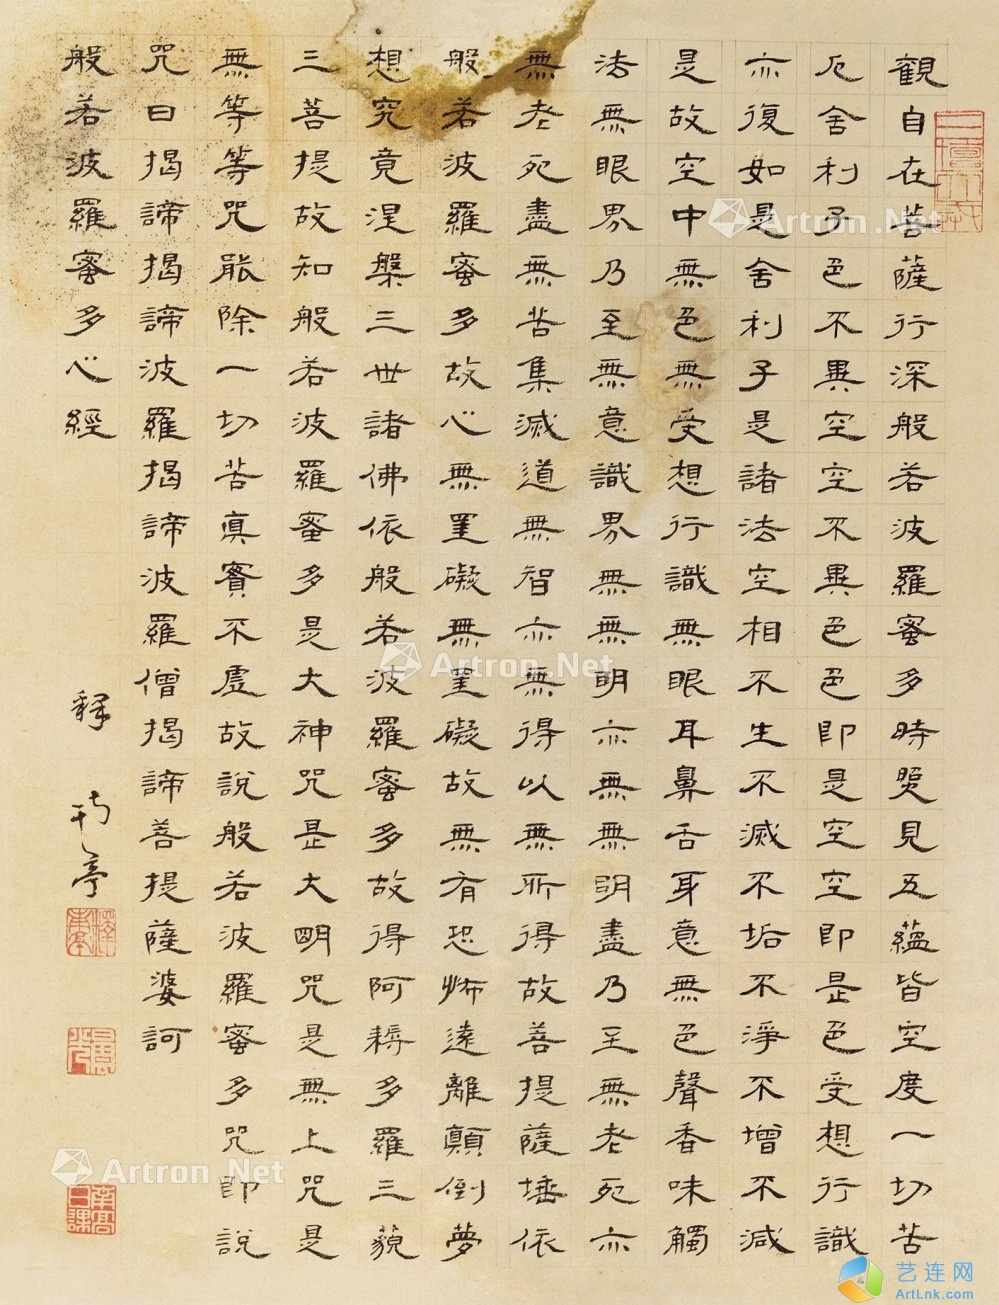 觀自在菩薩行深般若波羅蜜多時照見五蘊皆空度一切苦
厄舍利子色不異空空不異色色即是空空即是色受想行識
亦復如是舍利子是諸法空相不生不滅不垢不淨不增不減
是故空中無色無受想行識無眼耳鼻舌身意無色聲香味觸
法無眼界乃至無意識界無無明亦無無明盡乃至無老死亦
無老死盡無苦集滅道無智亦無得以無所得故菩提薩埵依
般若波羅蜜多故心無罣礙無罣礙故無有恐怖遠離顛倒夢
想究竟涅槃三世諸佛依般若波羅蜜多故得阿耨多羅三藐
三菩提故知般若波羅蜜多是大神咒是大明咒是無上咒是
無等等咒能除一切苦真實不虛故說般若波羅蜜多咒即說
咒曰揭諦揭諦波羅揭諦波羅僧揭諦菩提薩婆訶
般若波羅蜜多心經
釋南亭
Artron.Net
Artron.Net
Artron.Net
艺连网
ArtLnk.com